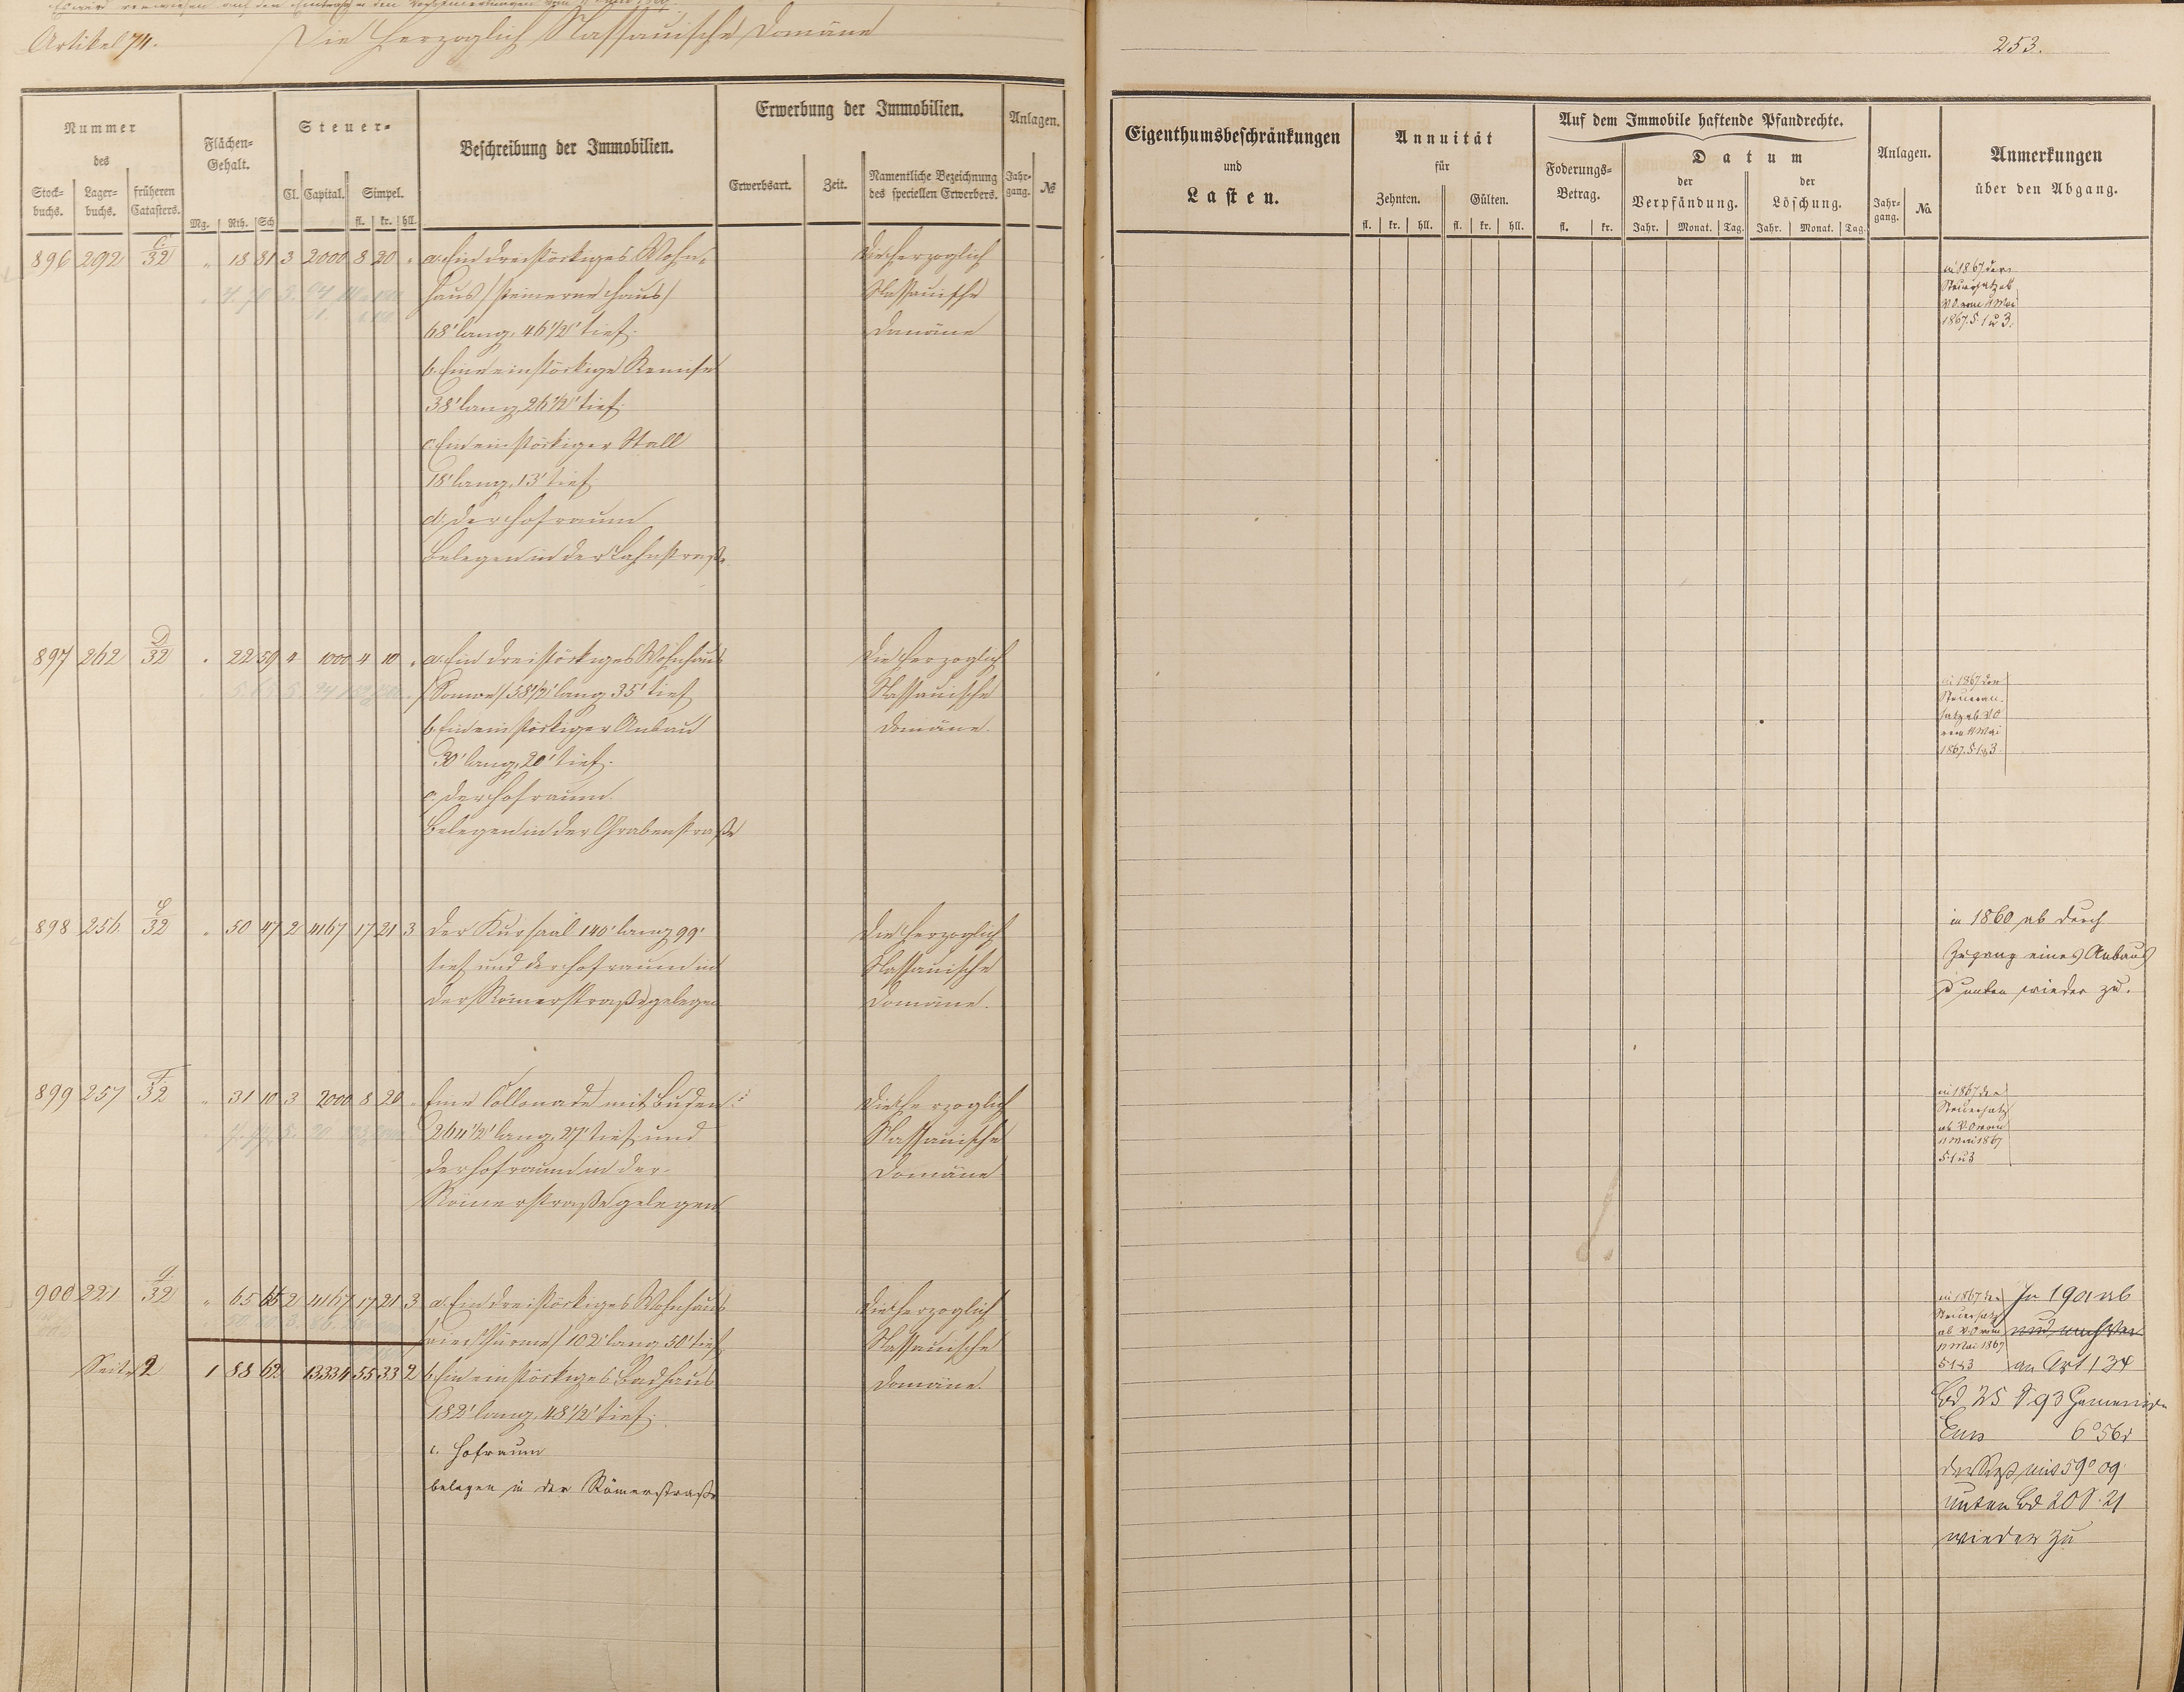 Artikel 74.
Die Herzoglich Nassauische Domäne
253.
Nummer des
Stockbuchs. Lagerbuchs. früheren Catasters.
Flächen-Gehalt.
Mg. Rth. Sch
Steuer-
Cl. Capital. Simpel.
fl. kr. hll.
Beschreibung der Immobilien.
Erwerbung der Immobilien.
Erwerbsart. Zeit. Namentliche Bezeichnung des speciellen Erwerbers.
Anlagen.
Jahrgang. №
Eigenthumsbeschränkungen
und
Lasten.
Annuität
für
Zehnten. Gülten.
fl. kr. hll. fl. kr. hll.
Auf dem Immobile haftende Pfandrechte.
Foderungs-Betrag.
fl. kr.
Datum
der Verpfändung. der Löschung.
Jahr. Monat. Tag. Jahr. Monat. Tag.
Anlagen.
Jahrgang. No.
Anmerkungen
über den Abgang.
896 292 C/32 " 18 81 3 2000 8 20 " a. Ein dreistöckiges Wohn- Die Herzoglich
haus /: steinerne Haus / Nassauische
68' lang, 46 1/2' tief. Domäne
b. Eine einstöckige Remise
38' lang, 26 1/2' tief.
c. Ein einstöckiger Stall
18' lang, 13' tief.
d. Der Hofraum
Belegen in der Lahnstraße
in 1867 der
Steuersatz ab
V.O. vom 11 Mai
1867. §. 1 u 3.
897 262 D/32 " 22 59 4 1000 4 10 " a. Ein dreistöckiges Wohnhaus Die Herzoglich
58 1/2' lang 35' tief Nassauische
b. Ein einstöckiger Anbau Domäne.
30' lang, 20' tief.
c. Der Hofraum.
Belegen in der Grabenstraße
in 1867 der
Steueran-
satz ab V.O
vom 11 Mai
1867. §. 1 u 3.
898 256 E/32 " 50 47 2 4167 17 21 3 Der Kursaal 140' lang 99' Die Herzoglich
tief und der Hofraum in Nassauische
der Römerstraße gelegen Domäne.
in 1860 ab durch
Zugang eines Anbaus
unten wieder zu.
899 257 F/32 " 31 10 3 2000 8 20 " Eine Collonade mit Buden Die Herzoglich
264 1/2' lang, 27' tief und Nassauische
der Hofraum in der Domäne
Römerstraße gelegen
in 1867 der
Steuersatz
ab V.O vom
11 Mai 1867
§. 1 u 3
900 221 G/32 " 65 65 2 4167 17 21 3 a. Ein dreistöckiges Wohnhaus Die Herzoglich
vier Thürme / 102' lang 50' tief Nassauische
Seite 2 1 88 62 13334 55 33 2 b. Ein einstöckiges Badhaus Domäne.
182' lang, 48 1/2' tief.
c. Hofraum
belegen in der Römerstraße
in 1867 der
Steuersatz
ab V.O vom
11 Mai 1867
§ 1 u 3
In 1901 ab
an Art 134
Bd 25 S 93 Gemeinde
Ems 6a 56
der Rest mit 59a 09
unten Bd 20 S. 21
wieder zu